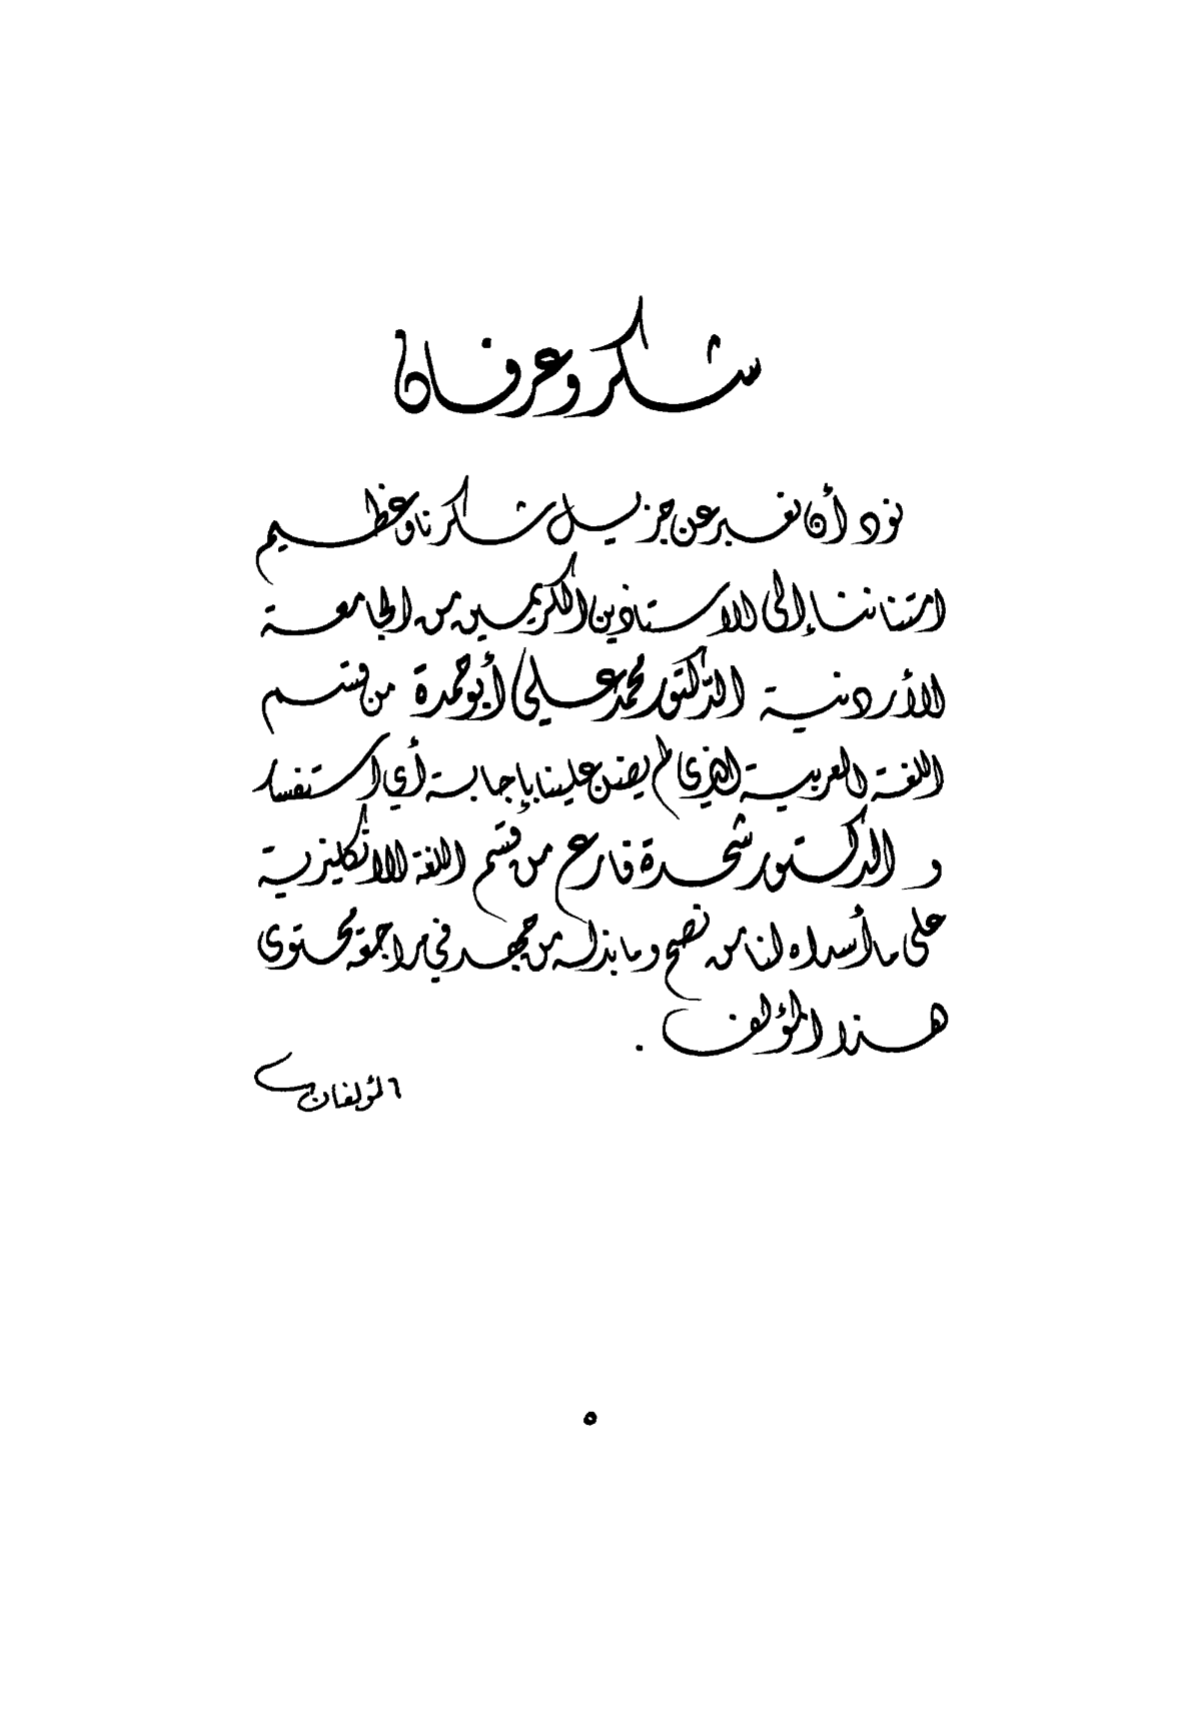 شكر وعرفان
نود أن نعبر عن جزيل شكرنا وعظيم
امتناننا إلى الاستاذين الكريمين من الجامعة
الأردنية الدّكتور محمد علي أبو حمدة من قسم
اللغة العربية الذي لم يضن علينا بإجابة أي استفسار
و الدكتور شحدة فارع من قسم اللغة الانكليزية
على ما أسداه لنا من نصح وما بذله من جهد في مراجعة محتوى
هذا المؤلف .
المؤلفان
٥